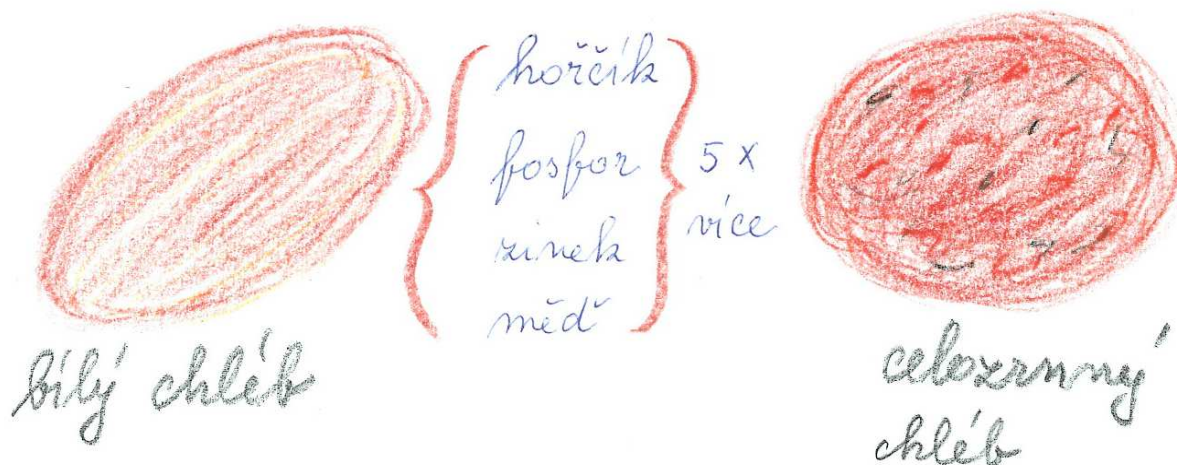 hořčík
fosfor
zinek
měď
5 x
více
bílý chléb
celozrnný
chléb